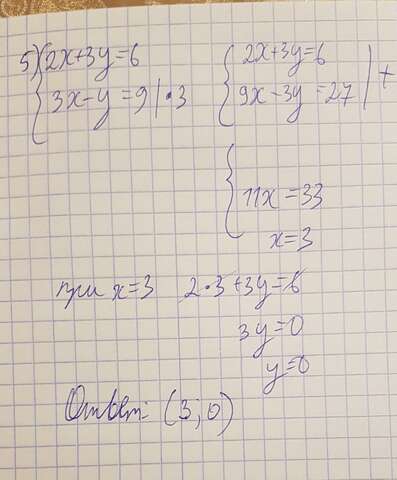 5) { 2x+3y=6 { 2x+3y=6
3x-y=9 | •3 9x-3y=27 | +
{ 11x=33
x=3
при x=3 2•3+3y=6
3y=0
y=0
Ответ: (3; 0)